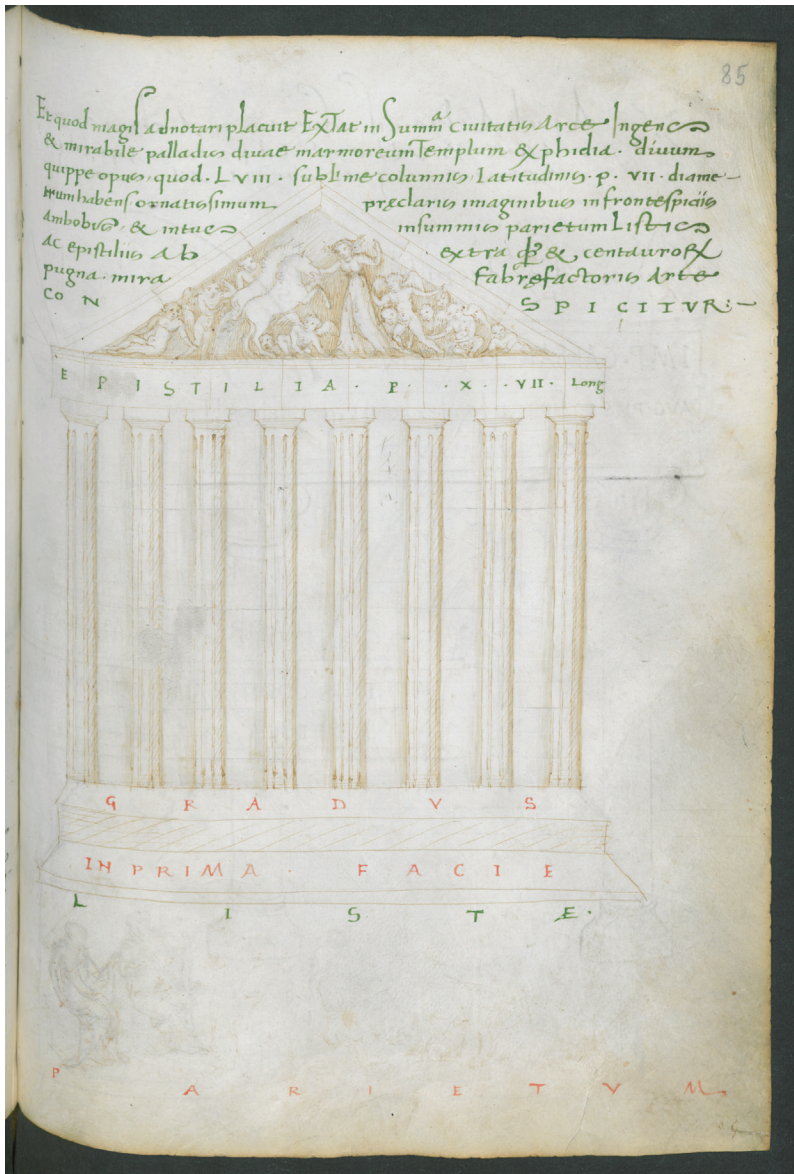 85
Et quod magis adnotari placuit EXTat in Summa civitatis Arce Ingens
& mirabile palladis divae marmoreum Templum & phidia. divum
quippe opus, quod. LVIII. sublime columnis, Latitudinis. p. VII. diame-
trum habens ornatissimum pręclaris imaginibus in frontespiciis
Ambobus, & intus insummis parietum Listis
Ac epistiliis Ab extra & centauror
pugna. mira fabręfactoris Arte
CON SPICITVR:-
EPISTILIA. P. X. VII. Long
GRADVS
IN PRIMA. FACIE
LISTÆ.
PARIETVM.